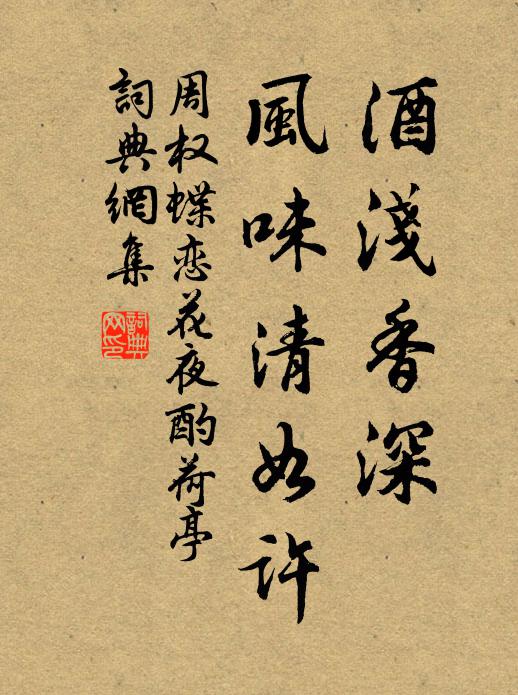 酒淺香深
風味清如許
周权蝶恋花夜酌荷亭
詞典網集
詞典網印